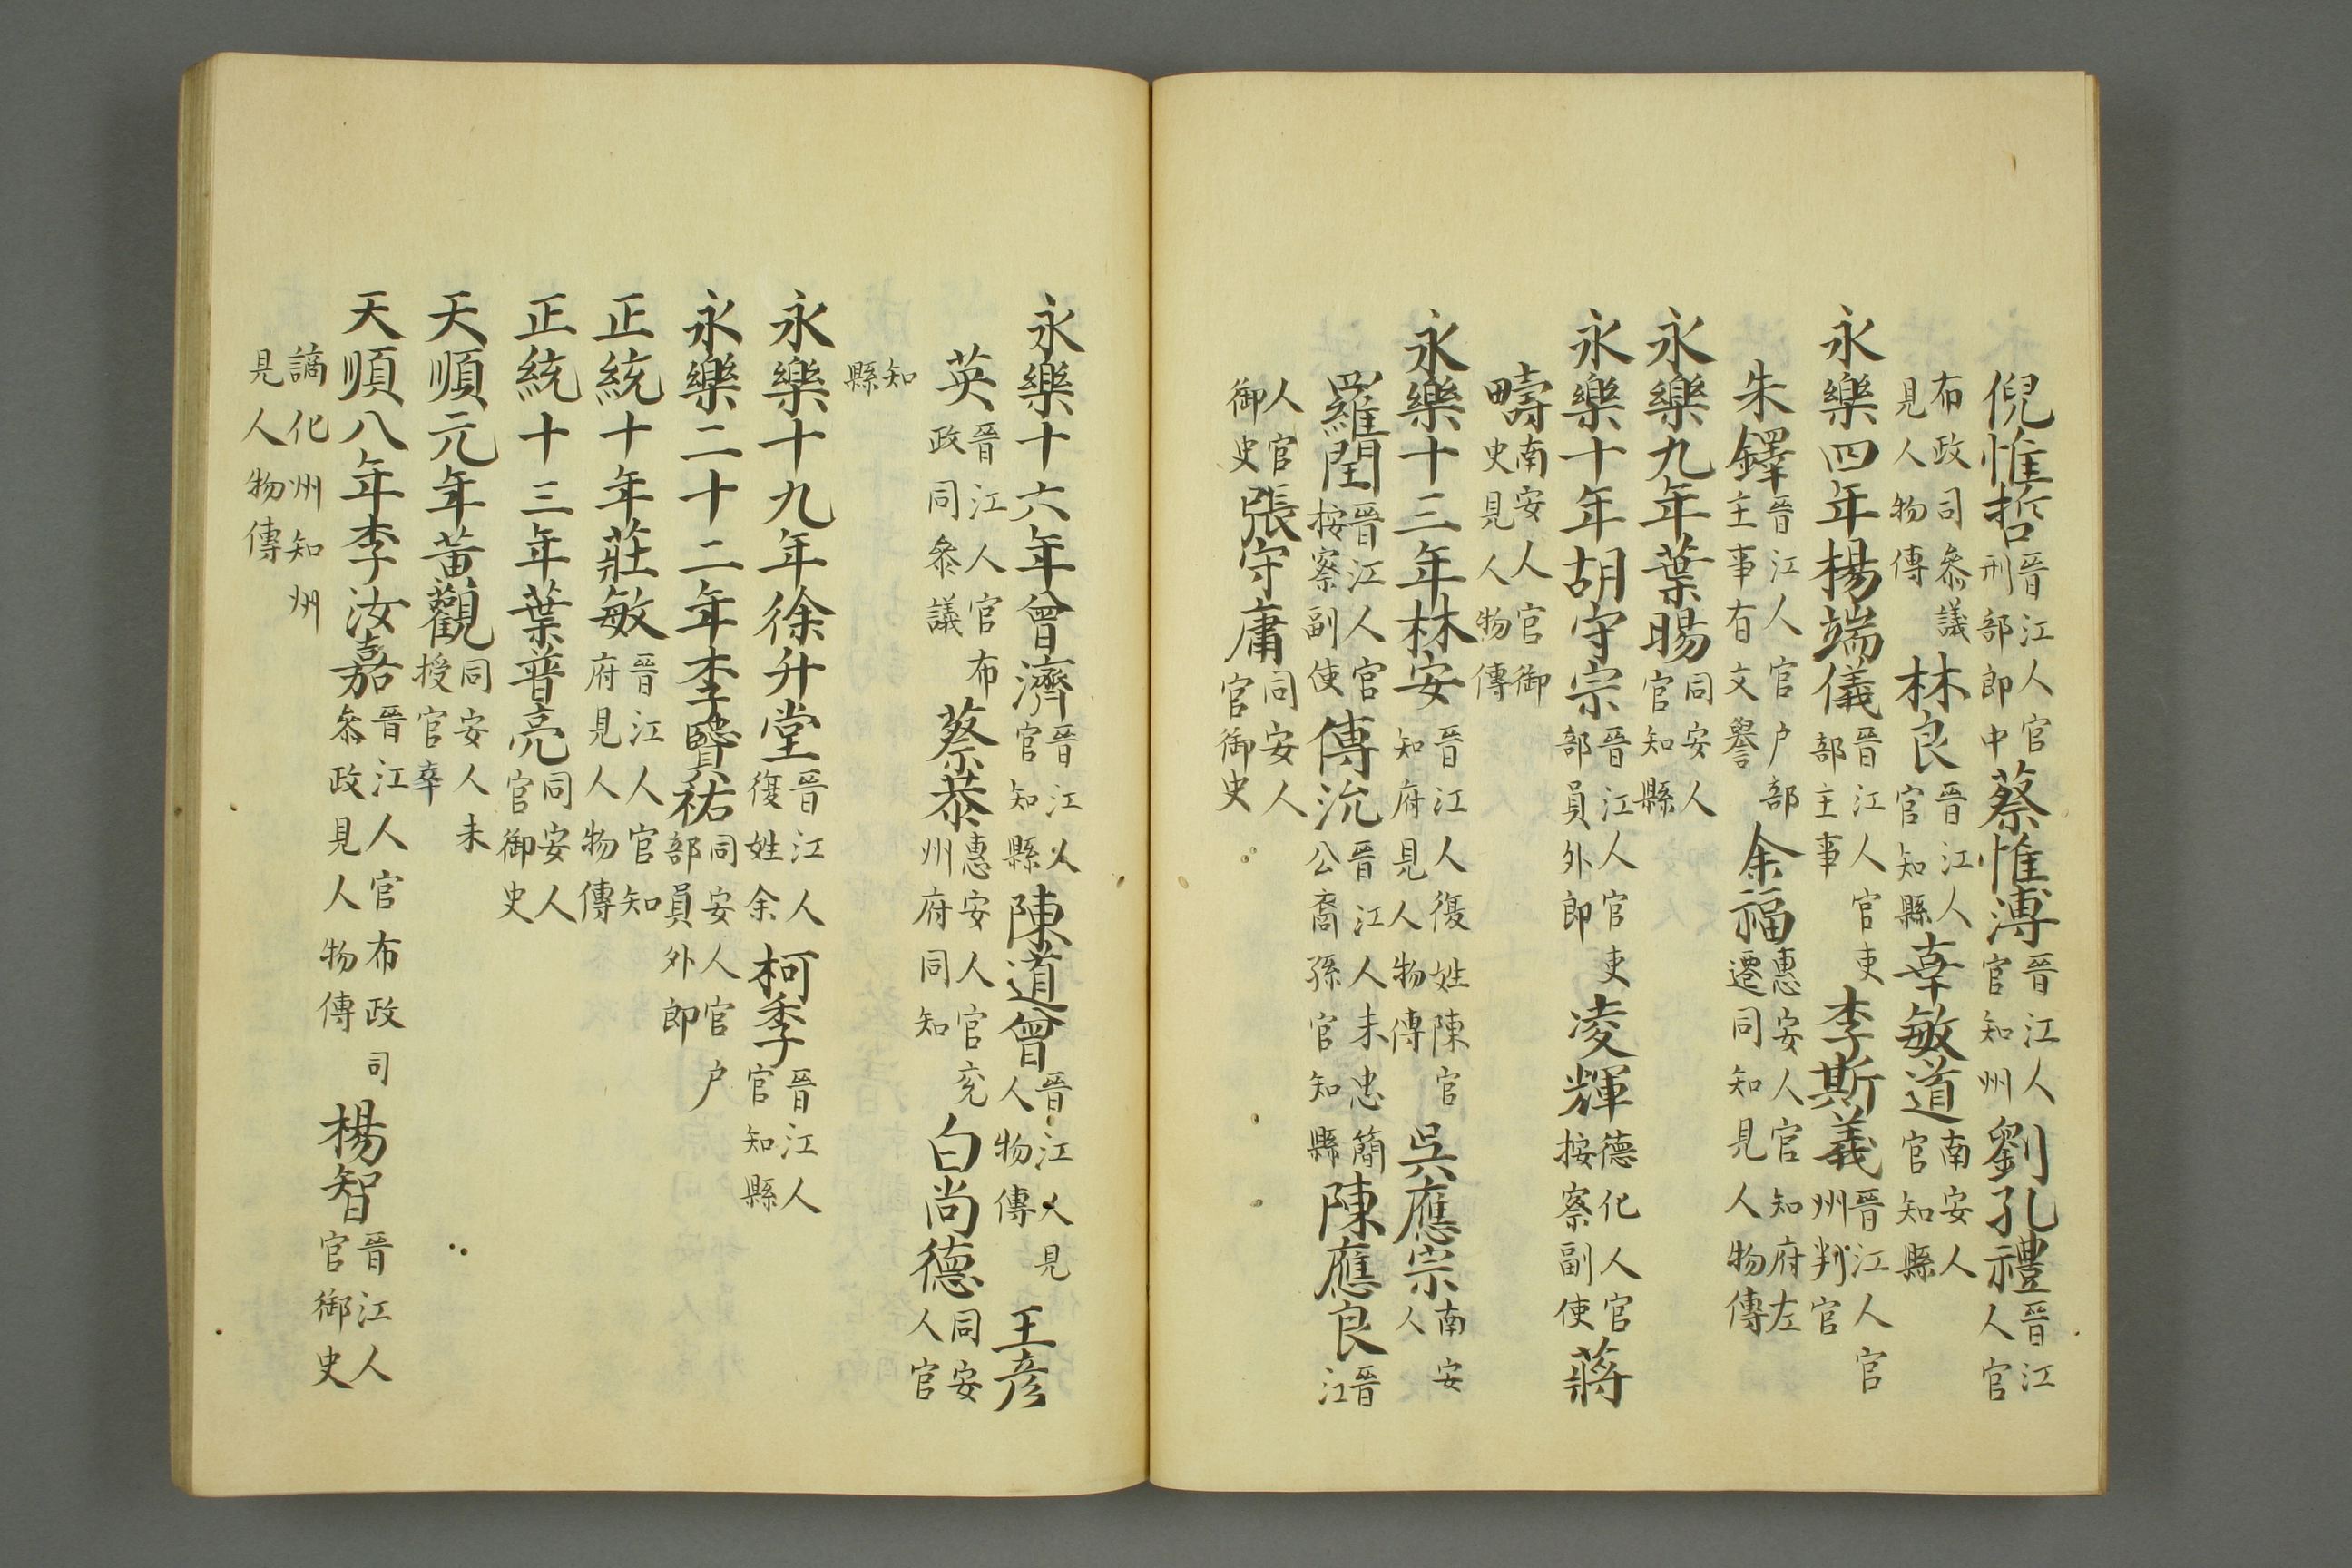 倪惟哲晉江人官刑部郎中蔡惟溥晉江人官知州劉孔禮晉江人官
布政司叅議見人物傳林良晉江人官知縣辜敏道南安人官知縣
永樂四年楊端儀晉江人官吏部主事李斯義晉江人官州判官
朱鐸晉江人官户部主事有文譽余福惠安人官知府左遷同知見人物傳
永樂九年葉暘同安人官知縣
永樂十年胡守宗晉江人官吏部員外郎凌輝德化人官按察副使蔣
疇南安人官御史見人物傳
永樂十三年林安晉江人復姓陳官知府見人物傳吳應宗南安人
羅閏晉江人官按察副使傅沇晉江人未忠簡公裔孫官知縣陳應良晉江
人官御史張守庸同安人官御史
永樂十六年曾濟晉江人官知縣陳道曾晉江人見人物傳王彦
英晉江人官布政司叅議蔡恭惠安人官兖州府同知白尚德同安人官
知縣
永樂十九年徐升堂晉江人復姓余柯季晉江人官知縣
永樂二十二年李賢祐同安人官户部員外郎
正統十年莊敏晉江人官知府見人物傳
正統十三年葉普亮同安人官御史
天順元年黃觀同安人未授官卒
天順八年李汝嘉晉江人官布政司叅政見人物傳楊智晉江人官御史
謫化州知州見人物傳